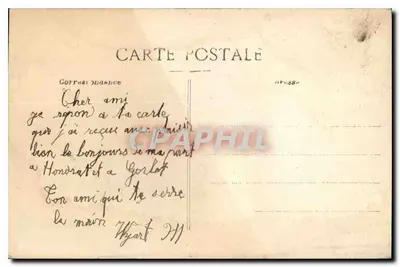 CARTE POSTALE
Correspondance
Cher ami
je repon a ta carte
que j'ai reçue avec plaisir
bien le bonjours de ma part
a Hondrat et a Gorlot
Ton ami qui te serre
la main
CPARAMA